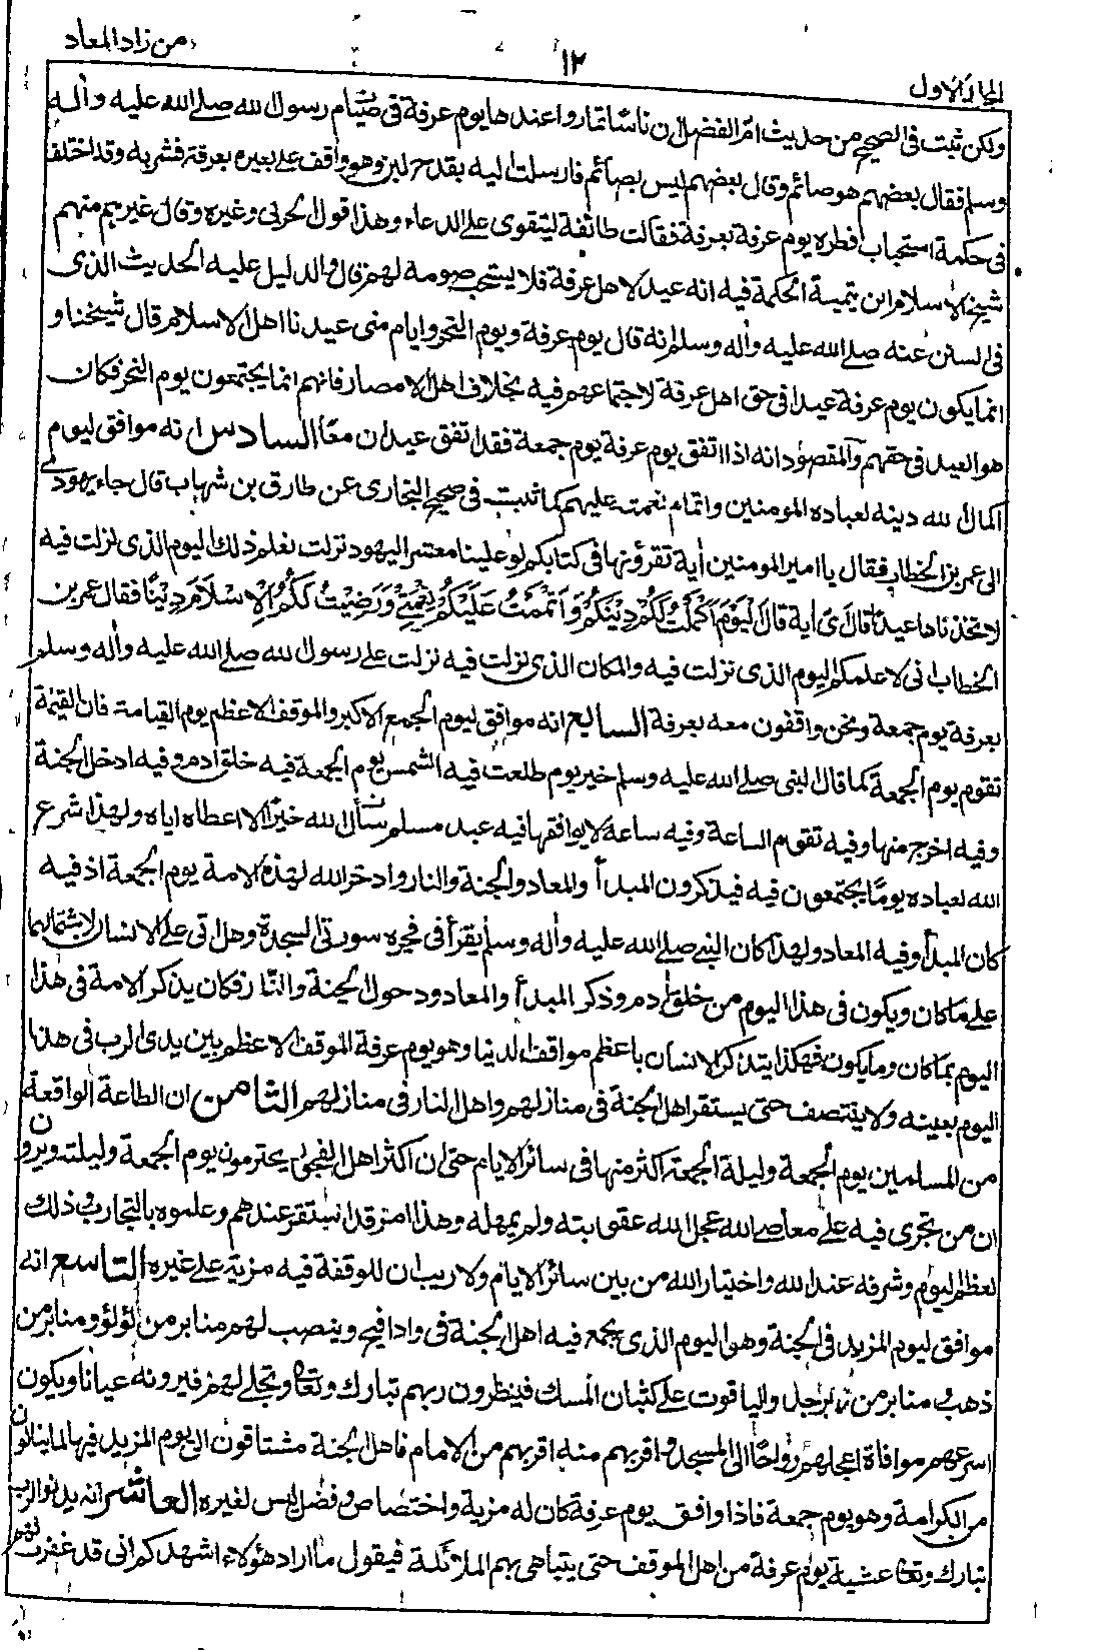 الجلد الاول
١٢
من زاد المعاد
ولكن ثبت فى الصحيح من حديث ام الفضل ان ناسا تماروا عندها يوم عرفة فى صيام رسول الله صلے الله عليه واٰله
وسلم فقال بعضهم هو صائم وقال بعضهم ليس بصائم فارسلت اليه بقدح لبن وهو واقف علے بعيره بعرفة فشربه وقد اختلف
فى حكمة استحباب فطره يوم عرفة بعرفة فقالت طائفة ليتقوى علے الدعاء وهذا قول الخرقى وغيره وقال غيرهم منهم
شيخ الاسلام ابن تيمية الحكمة فيه انه عيد لاهل عرفة فلا يستحب صومه لهم قال والدليل عليه الحديث الذى
فى السنن عنه صلے الله عليه واٰله وسلم انه قال يوم عرفة ويوم النحر وايام منى عيدنا اهل الاسلام قال شيخنا و
انما يكون يوم عرفة عيدا فى حق اهل عرفة لاجتماعهم فيه بخلاف اهل الامصار فانهم انما يجتمعون يوم النحر فكان
هو العيد فى حقهم والمقصود انه اذا اتفق يوم عرفة يوم جمعة فقد اتفق عيدان معًا السادس انه موافق ليوم
اكمال الله دينه لعباده المومنين واتمام نعمته عليهم كما ثبت فى صحيح البخارى عن طارق بن شهاب قال جاء يهودى
الى عمر بن الخطاب فقال يا امير المومنين اٰية تقرؤنها فى كتابكم لو علينا معشر اليهود نزلت نعلم ذلك اليوم الذى نزلت فيه
لاتخذناه عيدًا قال اى اٰية قال اَلْيَوْمَ اَكْمَلْتُ لَكُمْ دِيْنَكُمْ وَاَتْمَمْتُ عَلَيْكُمْ نِعْمَتِىْ وَرَضِيْتُ لَكُمُ الْاِسْلَامَ دِيْنًا فقال عمر بن
الخطاب انى لاعلم اليوم الذى نزلت فيه والمكان الذى نزلت فيه نزلت على رسول الله صلے الله عليه واٰله وسلم
بعرفة يوم جمعة ونحن واقفون معه بعرفة السابع انه موافق ليوم الجمع الاكبر والموقف الاعظم يوم القيامة فان القيمة
تقوم يوم الجمعة كما قال النبى صلے الله عليه وسلم خير يوم طلعت فيه الشمس يوم الجمعة فيه خلق اٰدم وفيه ادخل الجنة
وفيه اخرج منها وفيه تقوم الساعة وفيه ساعة لا يوافقها فيه عبد مسلم يسأل الله خيرًا الا اعطاه اياه ولهذا شرع
الله لعباده يومًا يجتمعون فيه فيذكرون المبدأ والمعاد والجنة والنار وادخر الله لهذه الامة يوم الجمعة اذ فيه
كان المبدأ وفيه المعاد ولهذا كان النبے صلے الله عليه واٰله وسلم يقرأ فى فجره سورتى السجدة وهل اتى علے الانسان لاشتمالهما
علے ما كان ويكون فى هذا اليوم من خلق اٰدم وذكر المبدأ والمعاد ودخول الجنة والنار فكان يذكر الامة فى هذا
اليوم بما كان وما يكون فهكذا يتذكر الانسان باعظم مواقف الدنيا وهو يوم عرفة الموقف الاعظم بين يدى الرب فى هذا
اليوم بعينه ولا ينتصف حتى يستقر اهل الجنة فى منازلهم واهل النار فى منازلهم الثامن ان الطاعة الواقعة
من المسلمين يوم الجمعة وليلة الجمعة اكثر منها فى سائر الايام حتى ان اكثر اهل الفجور يحترمون يوم الجمعة وليلته ويرون
ان من تجرى فيه علے معاصى الله عجل الله عقوبته ولم يمهله وهذا امر قد استقر عندهم وعلموه بالتجارب وذلك
لعظم اليوم وشرفه عند الله واختيار الله من بين سائر الايام ولا ريب ان للوقفة فيه مزية علے غيره التاسع انه
موافق ليوم المزيد فى الجنة وهو اليوم الذى يجمع فيه اهل الجنة فى واد افيح وينصب لهم منابر من لؤلؤ ومنابر من
ذهب منابر من زبرجد والياقوت علے كثبان المسك فينظرون ربهم تبارك وتعالى ويتجلے لهم فيرونه عيانا ويكون
اسرعهم موافاة اعجلهم رواحًا الى المسجد واقربهم منه اقربهم من الامام فاهل الجنة مشتاقون الى يوم المزيد فيها لما ينالون
من الكرامة وهو يوم جمعة فاذا وافق يوم عرفة كان له مزية واختصاص وفضل ليس لغيره العاشر انه يدنو الرب
تبارك وتعالى عشية يوم عرفة من اهل الموقف حتى يتباهى بهم الملائكة فيقول ما اراد هؤلاء اشهدكم انى قد غفرت لهم